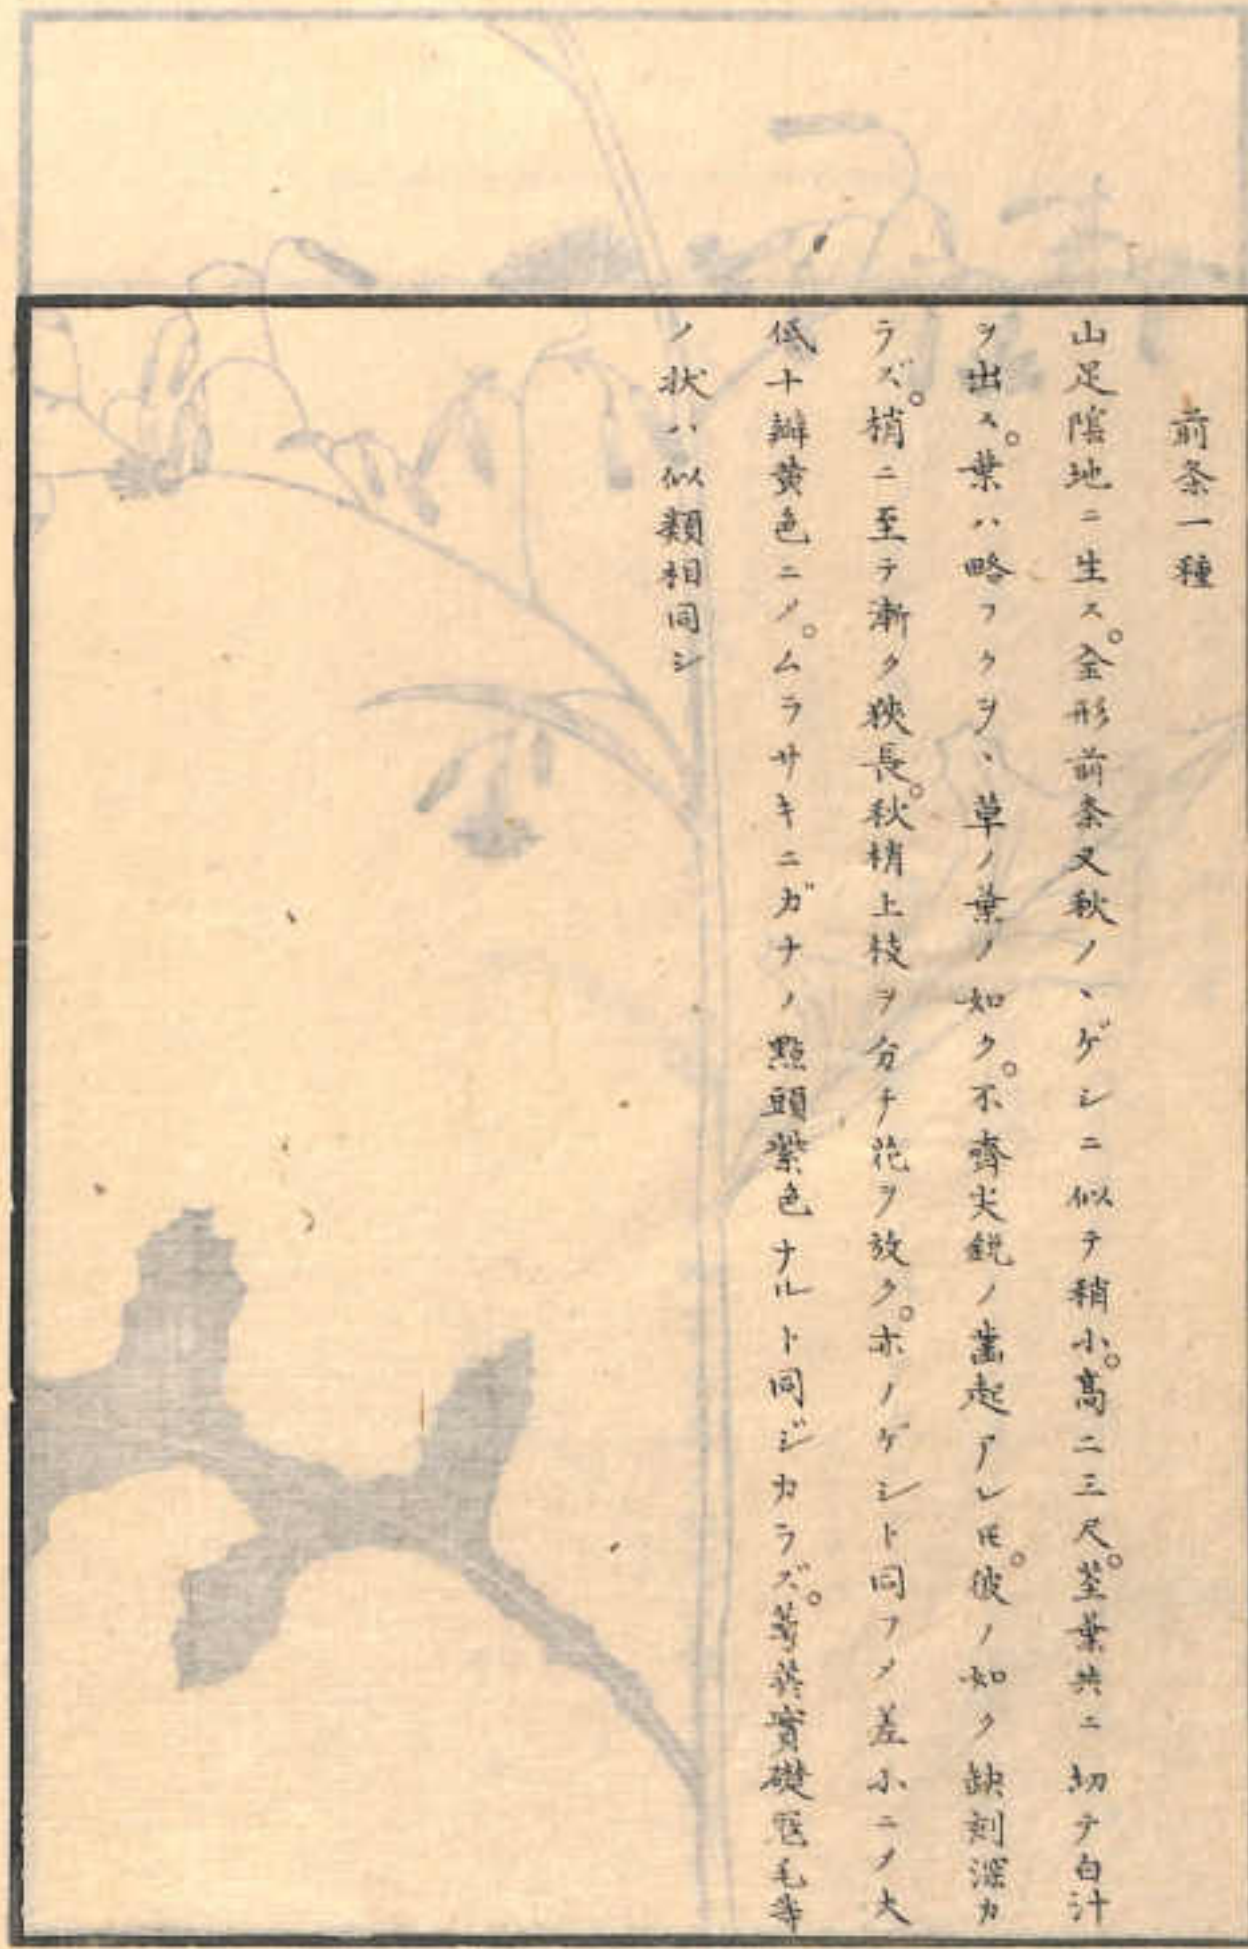 前条一種
山足陰地ニ生ス。全形前条又秋ノヽゲシニ似テ稍小。高二三尺。茎葉共ニ切テ白汁
ヲ出ス。葉ハ略フクヲヽ草ノ葉ノ如ク。不齊尖鋭ノ歯起アレ𪜈。彼ノ如ク缺刻深カ
ラズ。梢ニ至テ漸ク狹長。秋梢上枝ヲ分チ花ヲ放ク。亦ノゲシト同フメ差小ニメ大
低十瓣黄色ニメ。ムラサキニガナノ點頭紫色ナルト同ジカラズ。萼蕋實礎冠毛等
ノ状ハ似類相同シ